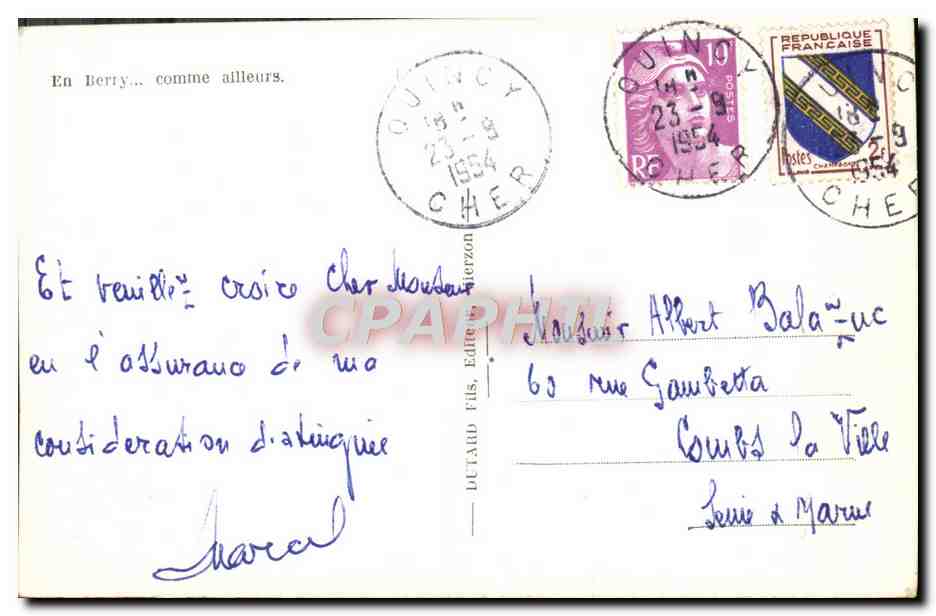 En Berry... comme ailleurs.
QUINCY
18 H
23 - 9
1954
CHER
QUINCY
18 H
23 - 9
1954
CHER
10F
POSTES
RF
REPUBLIQUE
FRANÇAISE
Postes 2F
CHAMPAGNE
18
- 9
1954
CHER
Et veuillez croire Cher Monsieur
en l'assurance de ma
consideration distinguée
Marcel
DUTARD Fils, Editeur, Vierzon
CPAPHIL
Monsieur Albert Bala
60 rue Gambetta
Combs la Ville
Seine & Marne